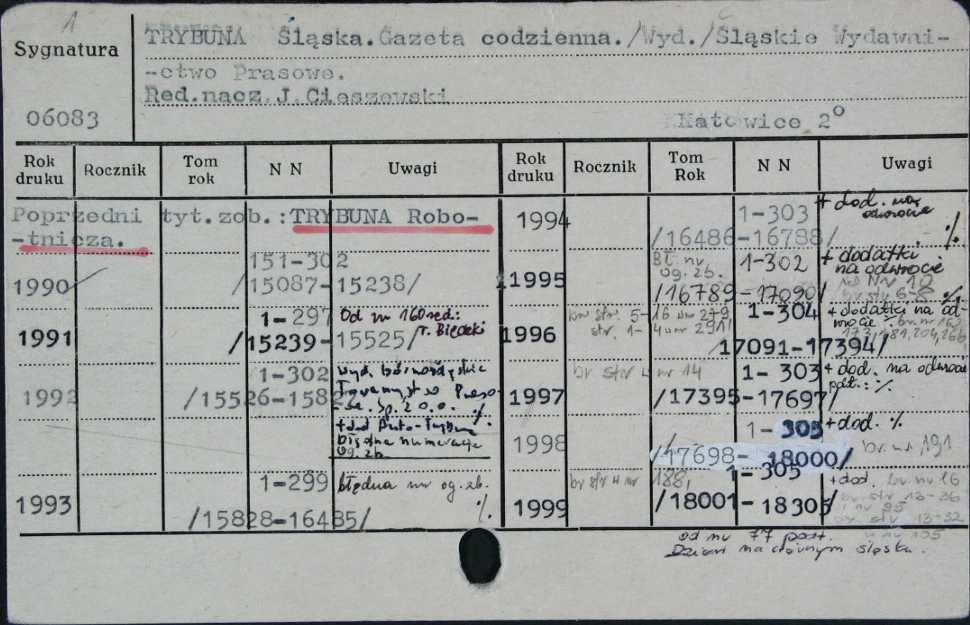 1
Sygnatura
06083
TRYBUNA Śląska.Gazeta codzienna./Wyd./Śląskie Wydawni-
-ctwo Prasowe.
Red.nacz.J.Cieszewski
Katowice 2°
Rok druku Rocznik Tom rok N N Uwagi Rok druku Rocznik Tom Rok N N Uwagi
Poprzedni tyt.zob.:TRYBUNA Robo-
-tnicza.
1990 151-302
/15087-15238/
1991 1-297 Od nr 160 red:
/15239-15525/
1992 1-302 wyd. Górnośląskie
/15526-15827 Towarzystwo Praso-
Sp. z o.o. %
+dod Auto-Trybuna
błędna numeracja
og.zb.
1993 1-299 błędna nr og.zb.
/15828-16485/ %
1994 1-303 + dod. na
odwrocie
/16486-16788/ %
1995 Bł. nr 1-302 + dodatki
og.zb. na odwrocie
/16789-17090/ br. str 6-8 %
1996 br str. 5- 16 nr 279 1-304 + dodatki na od-
str. 1- 4 nr 291
17091-17394/
1997 br str 4 nr 14 1-303 + dod. na odwrocie
/17395-17697/ %
1998 1-305 + dod. %
/17698-18000/ br. nr 191
1999 br str 4 nr 188, 1-305 +dod. br. nr 16
/18001-18305/ br str 13-36
br. str. 13-32
od nr 77 podt.
Dzień na dobrym śląsku.